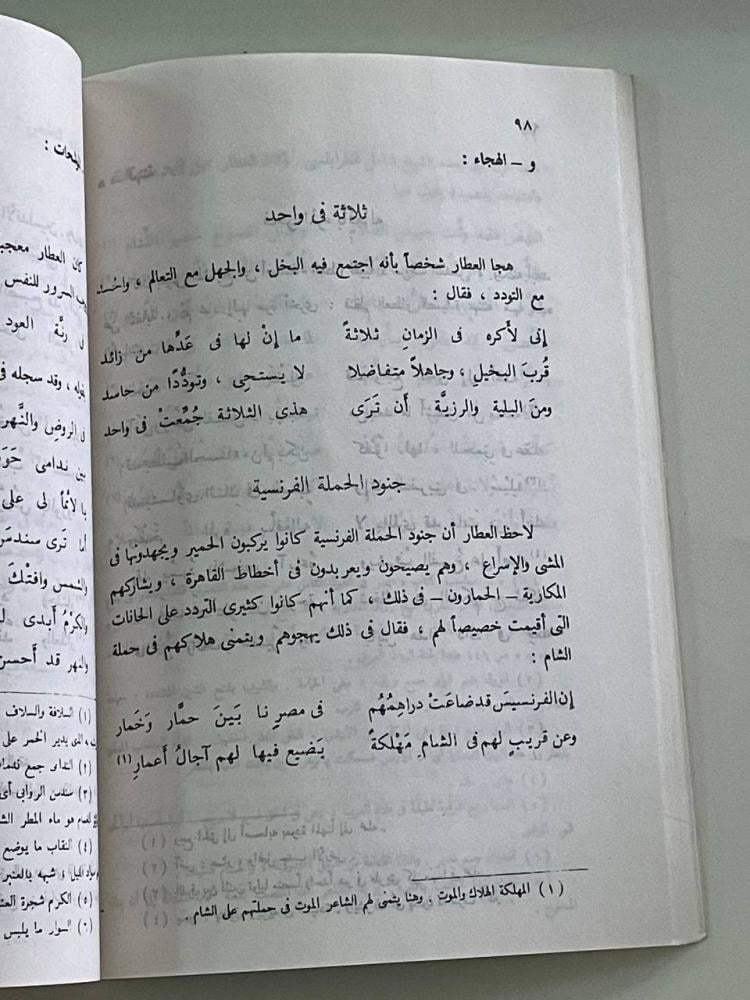 ٩٨
و – الهجاء :
ثلاثة فى واحد
هجا العطار شخصاً بأنه اجتمع فيه البخل ، والجهل مع التعالم ، والحسد
مع التودد ، فقال :
إنى لأكره فى الزمانِ ثلاثةً ما إنْ لها فى عَدِّها من زائد
قُربَ البخيلِ ، وجاهلاً متفاضلا لا يَستحِى ، وتودُّدًا من حاسد
ومنَ البلية والرزيَّة أن تَرَى هذى الثلاثةَ جُمِّعتْ فى واحد
جنود الحملة الفرنسية
لاحظ العطار أن جنود الحملة الفرنسية كانوا يركبون الحمير ويجهدونها فى
المشى والإسراع ، وهم يصيحون ويعربدون فى أخطاط القاهرة ، ويشاركهم
المكارية – الحمارون – فى ذلك ، كما أنهم كانوا كثيرى التردد على الحانات
التى أقيمت خصيصاً لهم ، فقال فى ذلك يهجوهم ويتمنى هلاكهم فى حملة
الشام :
إن الفرنسيسَ قد ضاعَتْ دراهِمُهُم فى مصرِنا بَينَ حمَّارِ وَخَمار
وعن قريبٍ لهم فى الشامِ مَهْلكةٌ يَضيع فيها لهم آجالُ أعمارِ (١)
(١) المهلكة الهلاك والموت . وهنا يتمنى لهم الشاعر الموت فى حملتهم على الشام .
كان العطار
السرور للنفس
رنَّة العود
، وقد سجله
الروضِ والنَّهر
بين ندامى
لى على
أما تَرى
والشمس
والكرْمُ أبدى
والنهر قد
(١) السلافة والسلاف
يدير الخمر على
(٢) الندامى جمع
(٣) سندس الروابى أى
هو ماء المطر
(٤) النقاب ما يوضع
الليل ، شبهه بالعنبر
(٥) الكرم شجرة
(٦) السوار ما يلبس